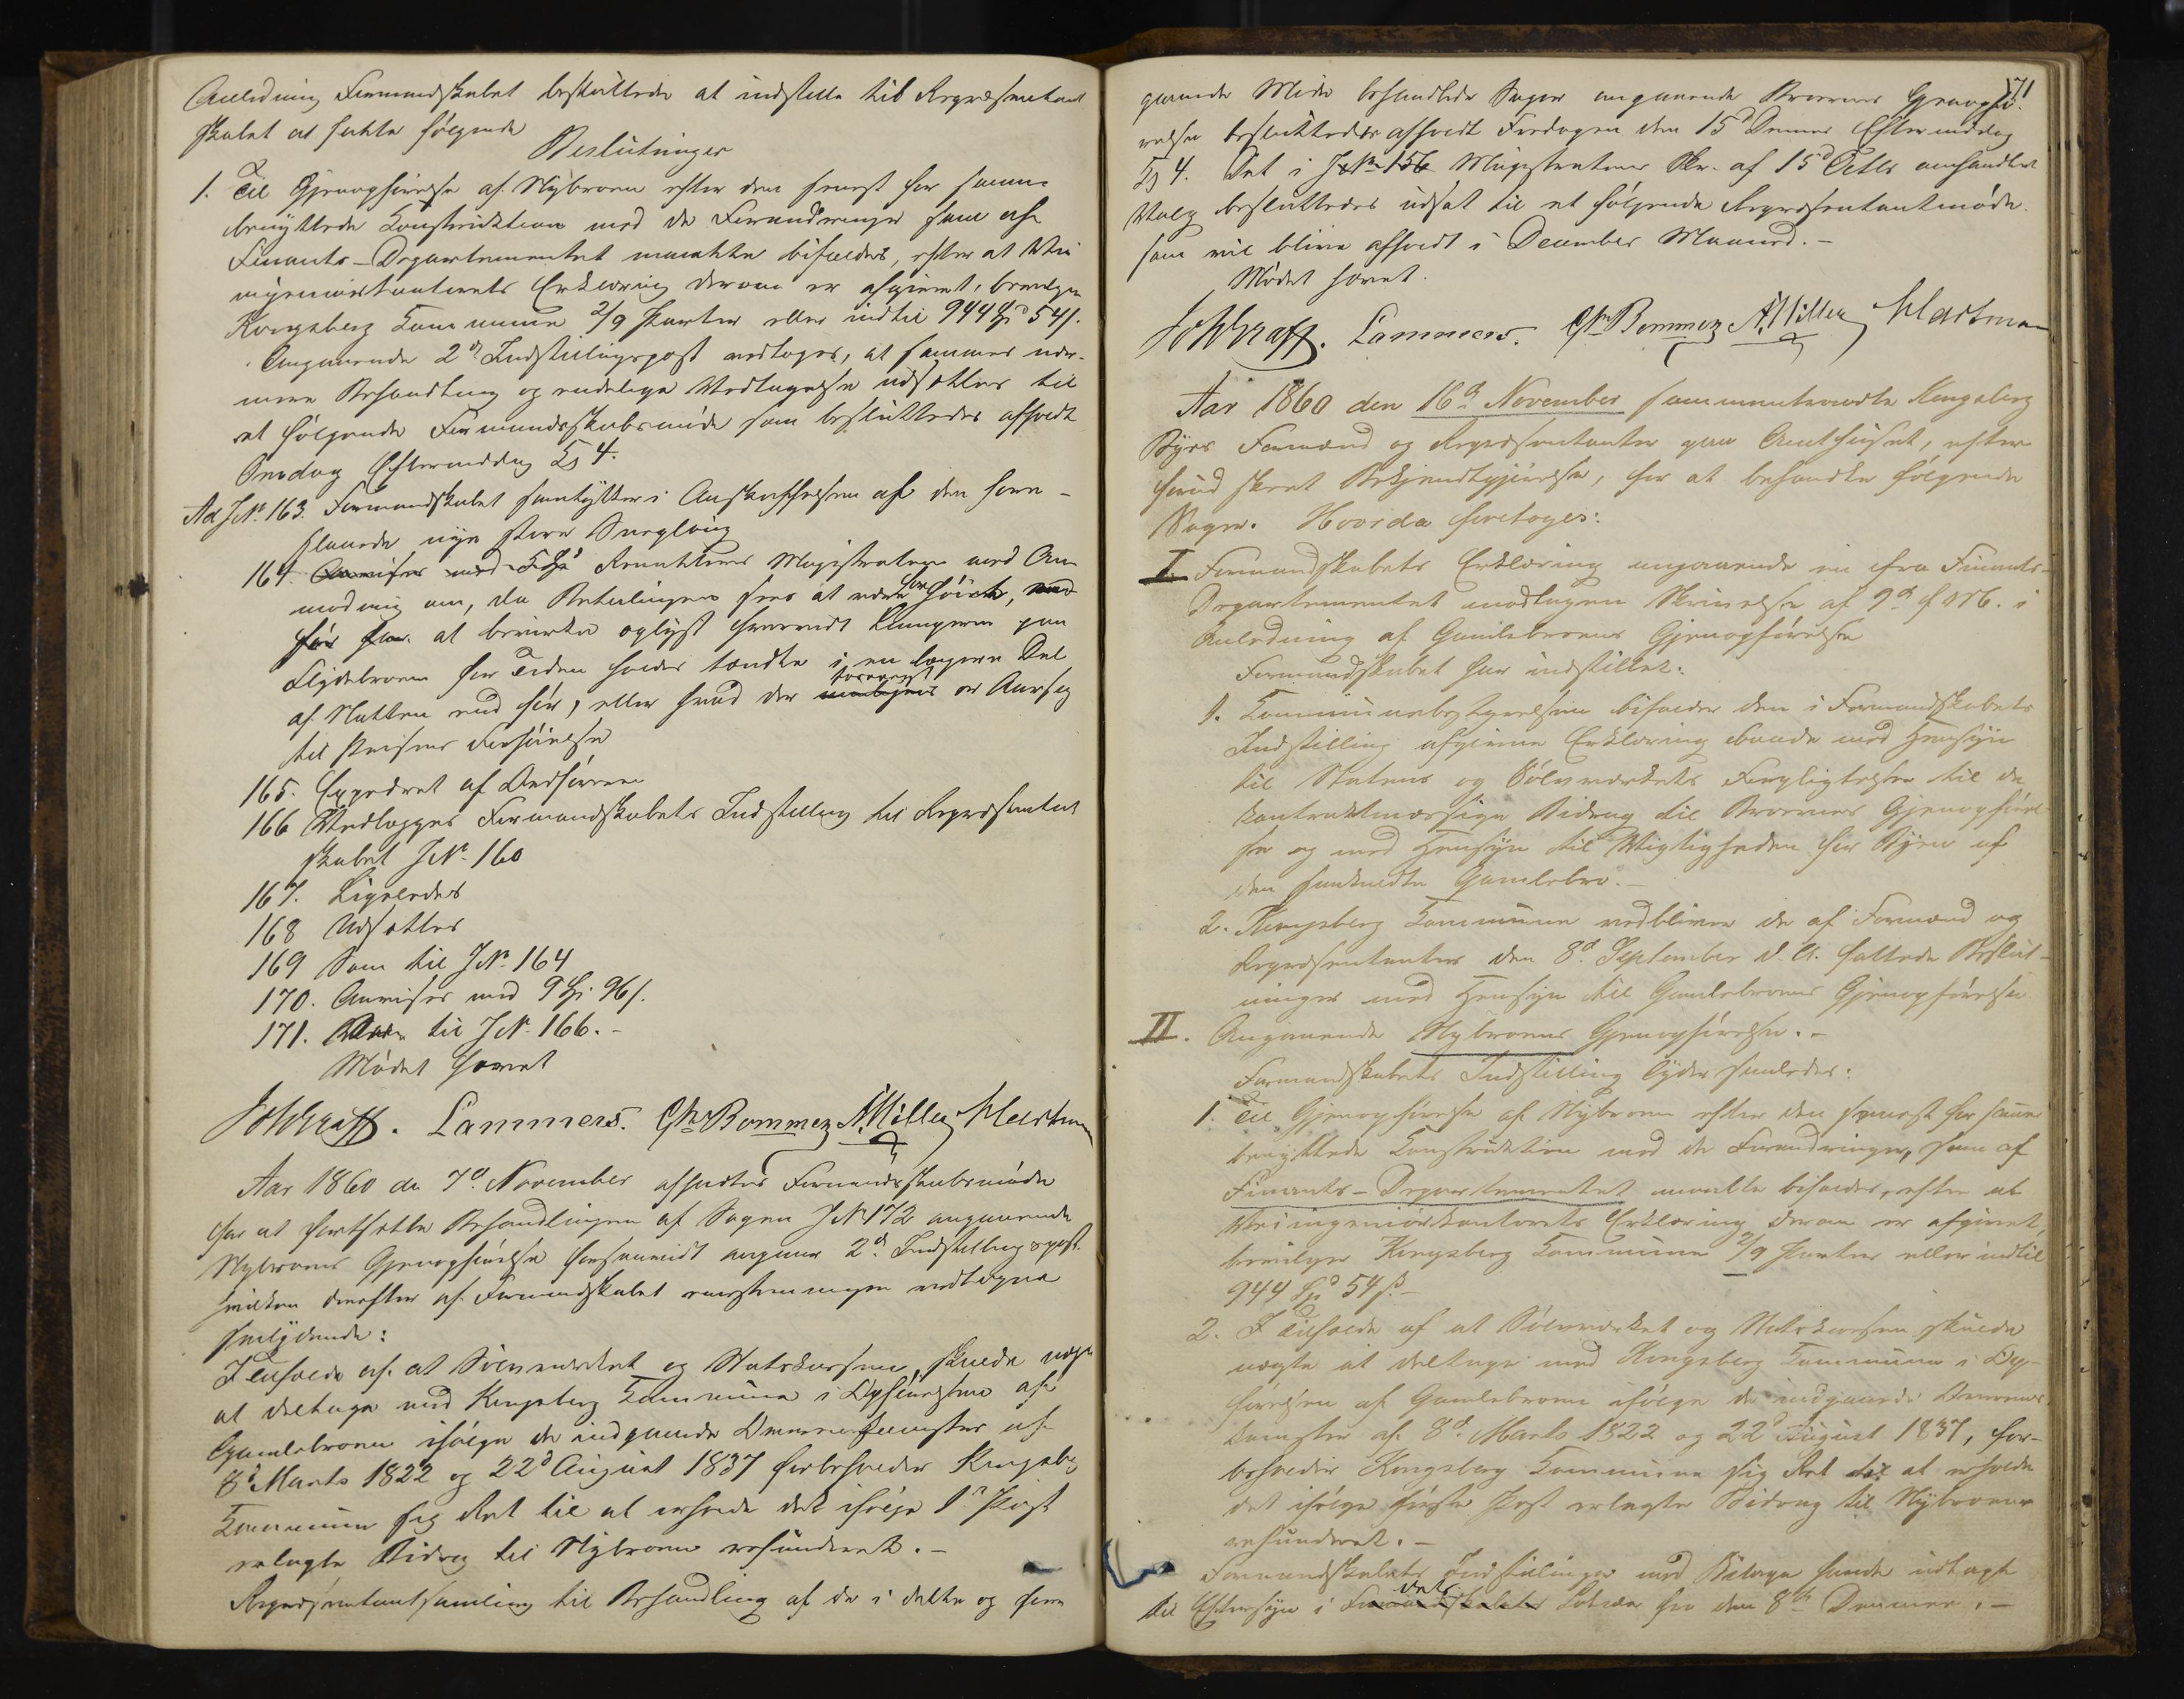 Anledning Formandskabet besluttede at indstille til Repræsentant
skabet at fatte følgende
Beslutninger
1. Til Gjenopførelse af Nybroen efter den senest for samme
benyttede Construktion med de Forandringer som af
Finants-Departementet maatte bifaldes, efter at Vei
ingenieurkontorets Erklæring derom er afgivet, bevilger
Kongsberg Kommune 2/9 Parter eller indtil 944 Spd 54 s.
Angaaende 2d Indstillingspost vedtoges, at sammes nær-
mere Behandling og endelige Vedtagelse udsættes til
et følgende Formandsskabsmøde som besluttedes afholdt
Onsdag Eftermiddag Kl 4.
Ad JN: 163. Formandskabet samtykker i Anskaffelsen af den fore-
slaaede nye store
164. Anvises med 5 Spd Remitteres Magistraten med An
modning om, da Betalingen sees at være for høi,
før at bevirke oplyst hvorvidt Lamperne paa
Flydebroen for Tiden holdes tændte i en længere Del
af Natten end før, eller hvad der forøvrigt er Aarsag
til Prisens Forhøielse
165. Expederet af Ordføreren
166 Vedlægges Formandskabets Indstilling til Repræsentant
skabet JN: 160
167. Ligeledes
168 Udsættes
169 Som til JN: 164
170. Anvises med 9 Spd 96 s.
171. til JN: 166.-
Mødet hævet
Lammers. Chr Bommen A. Møller Hartman
Aar 1860 den 7d November afholdtes Formandsskabsmøde
for at fortsætte Behandlingen af Sagen JN 172 angaaende
Nybroens Gjenopførelse forsaavidt angaaer 2d Indstillingspost.
hvilken derefter af Formandskabet eenstemmigen vedtagne
saalydende:
I Tilfælde af at Sølvværket og Statskassen skulde nægte
at deltage med Kongsberg Kommune i Opførelsen af
Gamlebroen ifølge de indgaaede Overenskomster af
8d Marts 1822 og 22d August 1837 forbeholder Kongsberg
Kommune sig Ret til at erholde det ifølge 1ste Post
erlagte Bidrag til Nybroen refunderet.-
Repræsentantsamling til Behandling af de i dette og fore
171
gaaende Møde behandlede Sager angaaende Broernes Gjenopfø
relse besluttedes afholdt Fredagen den 15d Dennes Eftermiddag
Kl 4. Det i JN: 156 Magistratens Skr. af 15d Octbr omhandlet
Valg besluttedes udsat til et følgende Repræsentantmøde.
som vil blive afholdt i December Maaned.-
Mødet hævet.
Lammers. Chr Bommen A. Møller Hartman
Aar 1860 den 16d November sammentraadte Kongsberg
Byes Formænd og Repræsentanter paa Raadhuset, efter
forud skeet Bekjendtgjørelse, for at behandle følgende
Sager. Hvorda foretoges:
I. Formandskabets Erklæring angaaende en fra Finants-
Departementet modtagen Skrivelse af 9d f. M. i
Anledning af Gamlebroens Gjenopførelse
Formandskabet har indstillet:
1. Communebestyrelsen bifalder den i Formandskabets
Indstilling afgivne Erklæring baade med Hensyn
til Statens og Sølvværkets Forpligtelse til de
kontraktmæssige Bidrag til Broernes Gjenopførel
se og med Hensyn til Vigtigheden for Byen af
den saakaldte Gamlebro.-
2. Kongsberg Kommune vedbliver de af Formænd og
Repræsentanter den 8d September d. A. fattede Beslut-
ninger med Hensyn til Gamlebroens Gjenopførelse
II. Angaaende Nybroens Gjenopførelse.-
Formandskabets Indstilling lyder saaledes:
1. Til Gjenopførelse af Nybroen efter den senest for samme
benyttede Construktion med de Forandringer, som af
Finants-Departementet maatte bifaldes, efter at
Veiingeniørkontorets Erklæring derom er afgivet,
bevilger Kongsberg Kommune 2/9 Parter eller indtil
944 Spd 54 s.-
2. I Tilfælde af at Sølvværket og Statskassen skulde
nægte at deltage med Kongsberg Kommune i Op-
førelsen af Gamlebroen ifølge de indgaaede Overens-
komster af 8d Marts 1822 og 22d August 1837, for-
beholder Kongsberg Kommune sig Ret til at erholde
det ifølge første Post erlagte Bidrag til Nybroen
refunderet.-
Formandskabets Indstillinger med Bilage havde udlagt
til Eftersyn i dets Formandskabets Locale fra den 8de Dennes.-